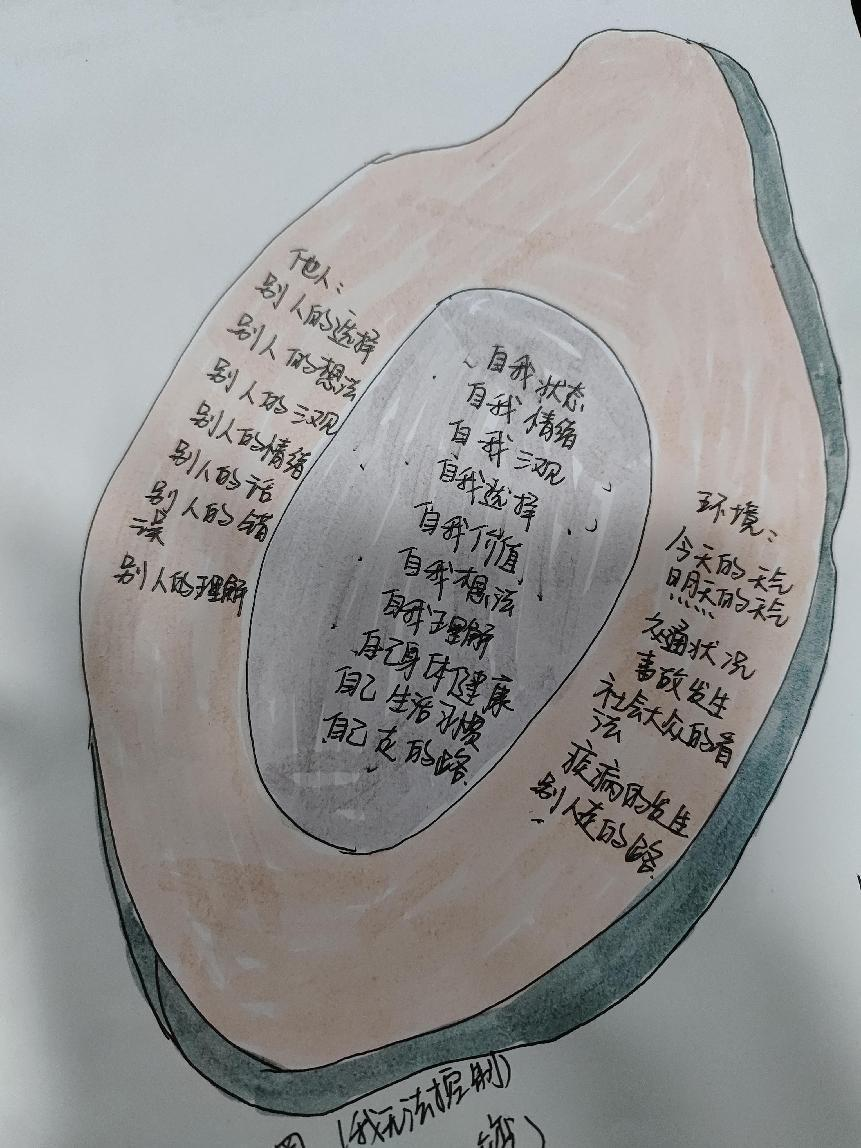 他人：
别人的选择
别人的想法
别人的三观
别人的情绪
别人的话
别人的错
误
别人的理解
自我状态
自我情绪
自我三观
自我选择
自我价值
自我想法
自我理解
自己身体健康
自己生活习惯
自己走的路
环境：
今天的天气
明天的天气
交通状况
事故发生
社会大众的看
法
疾病的发生
别人走的路
(我无法控制)